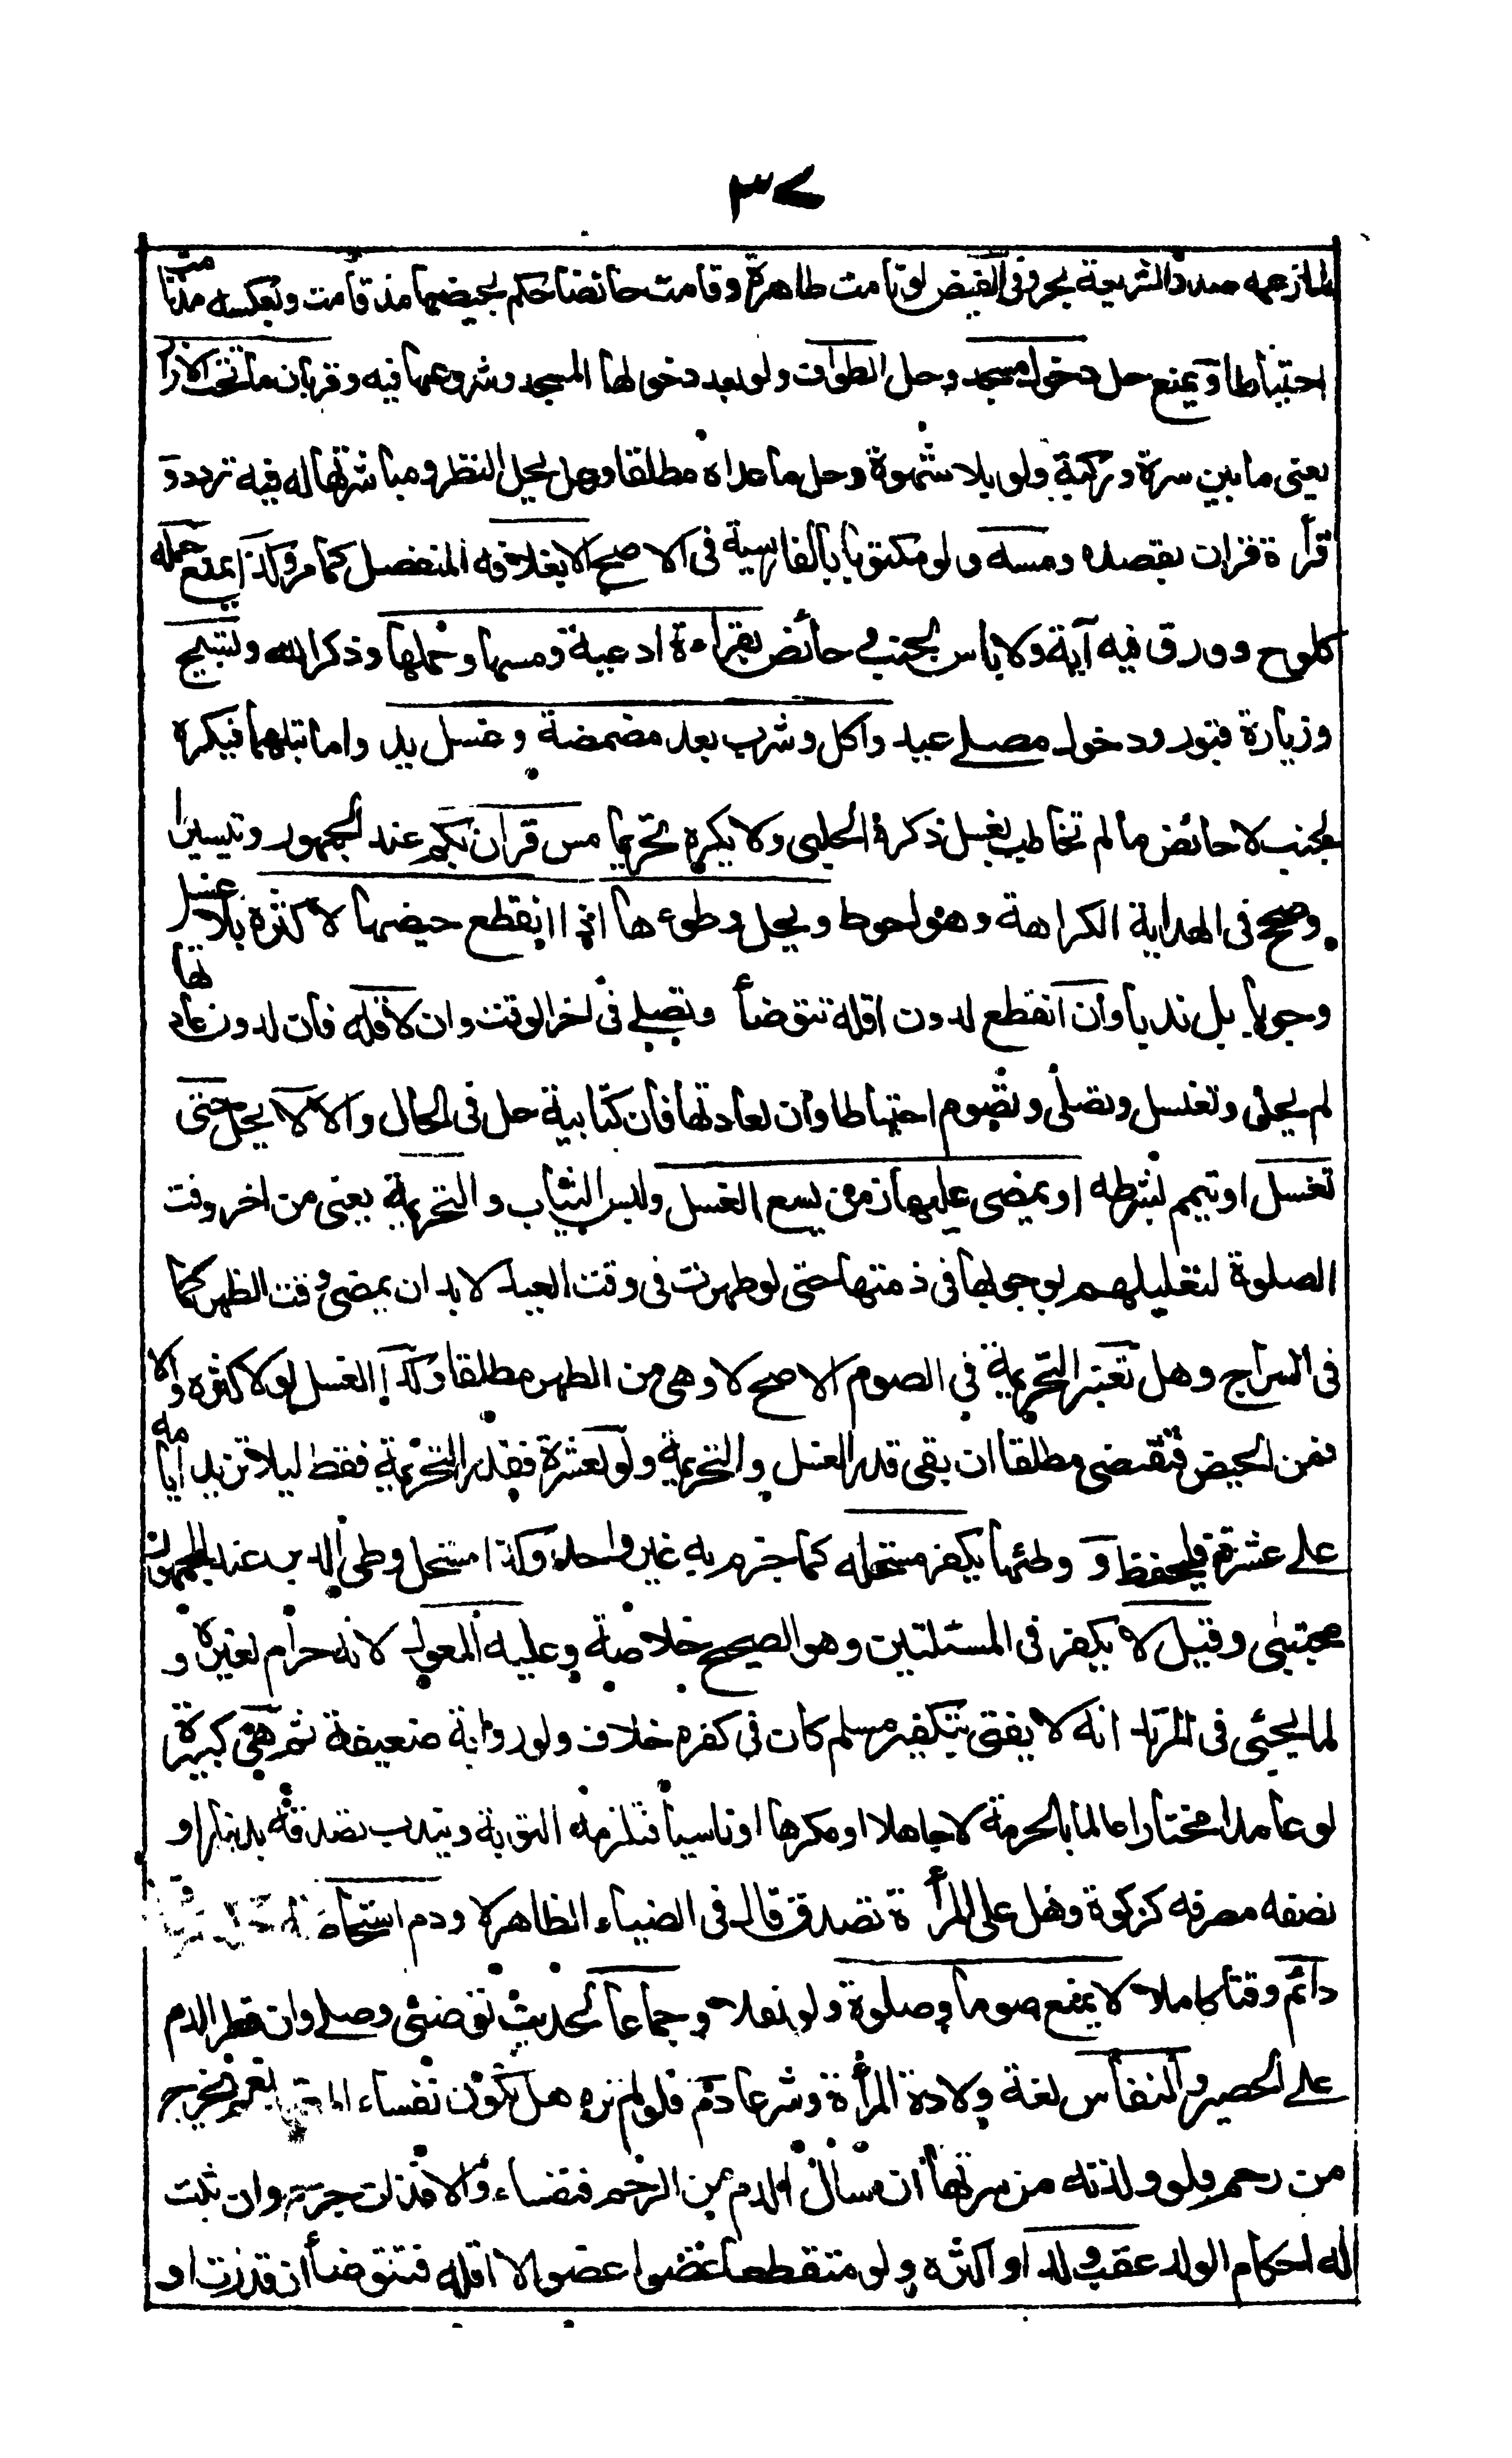 ٣٧
لما زعمه صدر الشريعة بحر وفى الفيض لو نامت طاهرة وقامت حائضا حكم بحيضها مذ قامت وبعكسه مذ نامت
احتياطا ويمنع حل دخول مسجد وحل الطواف ولو بعد دخولها المسجد وشروعها فيه وقربان ما تحت الازار
يعنى ما بين سرة وركبة ولو بلا شهوة وحل ما عداه مطلقا وهل يحل النظر ومباشرتها له فيه تردد و
قرأة قران بقصده ومسه ولو مكتوبا بالفارسية فى الاصح الا بغلافه المنفصل كما مر وكذا يمنع حمله
كلوح وورق فيه آية ولا باس لجنب و حائض بقراءة ادعية ومسها وحملها وذكر الله وتسبيح
وزيارة قبور ودخول مصلے عيد واكل وشرب بعد مضمضة وغسل يد واما قبلهما فيكره
لجنب لا حائض ما لم تخاطب بغسل ذكره الحلبى ولا يكره تحريما مس قران بكم عند الجمهور وتيسيرا
وصحح فى الهداية الكراهة وهو احوط ويحل وطوءها اذا انقطع حيضها لاكثره بلا غسل
وجوبا بل ندبا وان انقطع لدون اقله تتوضأ وتصلے فى اخر الوقت وان لاقله فان لدون عادتها
لم يحل وتغتسل وتصلى وتصوم احتياطا وان لعادتها فان كتابية حل فى الحال والا لا يحل حتى
تغسل او تيمم بشرطه او يمضى عليها زمن يسع الغسل ولبس الثياب والتحريمة يعنى من اخر وقت
الصلوة لتعليلهم بوجوبها فى ذمتها حتى لو طهرت فى وقت العيد لا بد ان يمضى وقت الظهر كما
فى السراج وهل تعتبر التحريمة فى الصوم الاصح لا وهى من الطهر مطلقا وكذا الغسل لو لاكثره والا
فمن الحيض فتقضى مطلقا ان بقى قدر الغسل والتحريمة ولو لعشرة فقدر التحريمة فقط ليلا تزيد ايامه
علے عشرة فليحفظ و وطئها يكفر مستحله كما جزم به غير واحد وكذا مستحل وطى الدبر عند الجمهور
مجتبى وقيل لا يكفر فى المسئلتين وهو الصحيح خلاصة وعليه المعول لانه حرام لغيره و
لما يجئى فى المرتد انه لا يفتى بتكفير مسلم كان فى كفره خلاف ولو رواية ضعيفة ثم هى كبيرة
لو عامدا مختارا عالما بالحرمة لا جاهلا او مكرها او ناسيا فتلزمه التوبة ويندب تصدقه بدينار او
نصفه مصرفه كزكوة وهل على المرأة تصدق قال فى الضياء الظاهر لا ودم استحاضة
دائم وقتا كاملا لا يمنع صوما وصلوة ولو نفلا وجماعا لحديث توضئى وصلے وان قطر الدم
علے الحصير والنفاس لغة ولادة المرأة وشرعا دم فلو لم تره هل تكون نفساء المعتمد نعم فيخرج
من رحم فلو ولدته من سرتها ان سال الدم من الرحم فنفساء والا فذات جرح وان ثبت
له احكام الولد عقب ولد او اكثره ولو متقطعا عضوا عضوا لا اقله فتتوضأ ان قدرت او